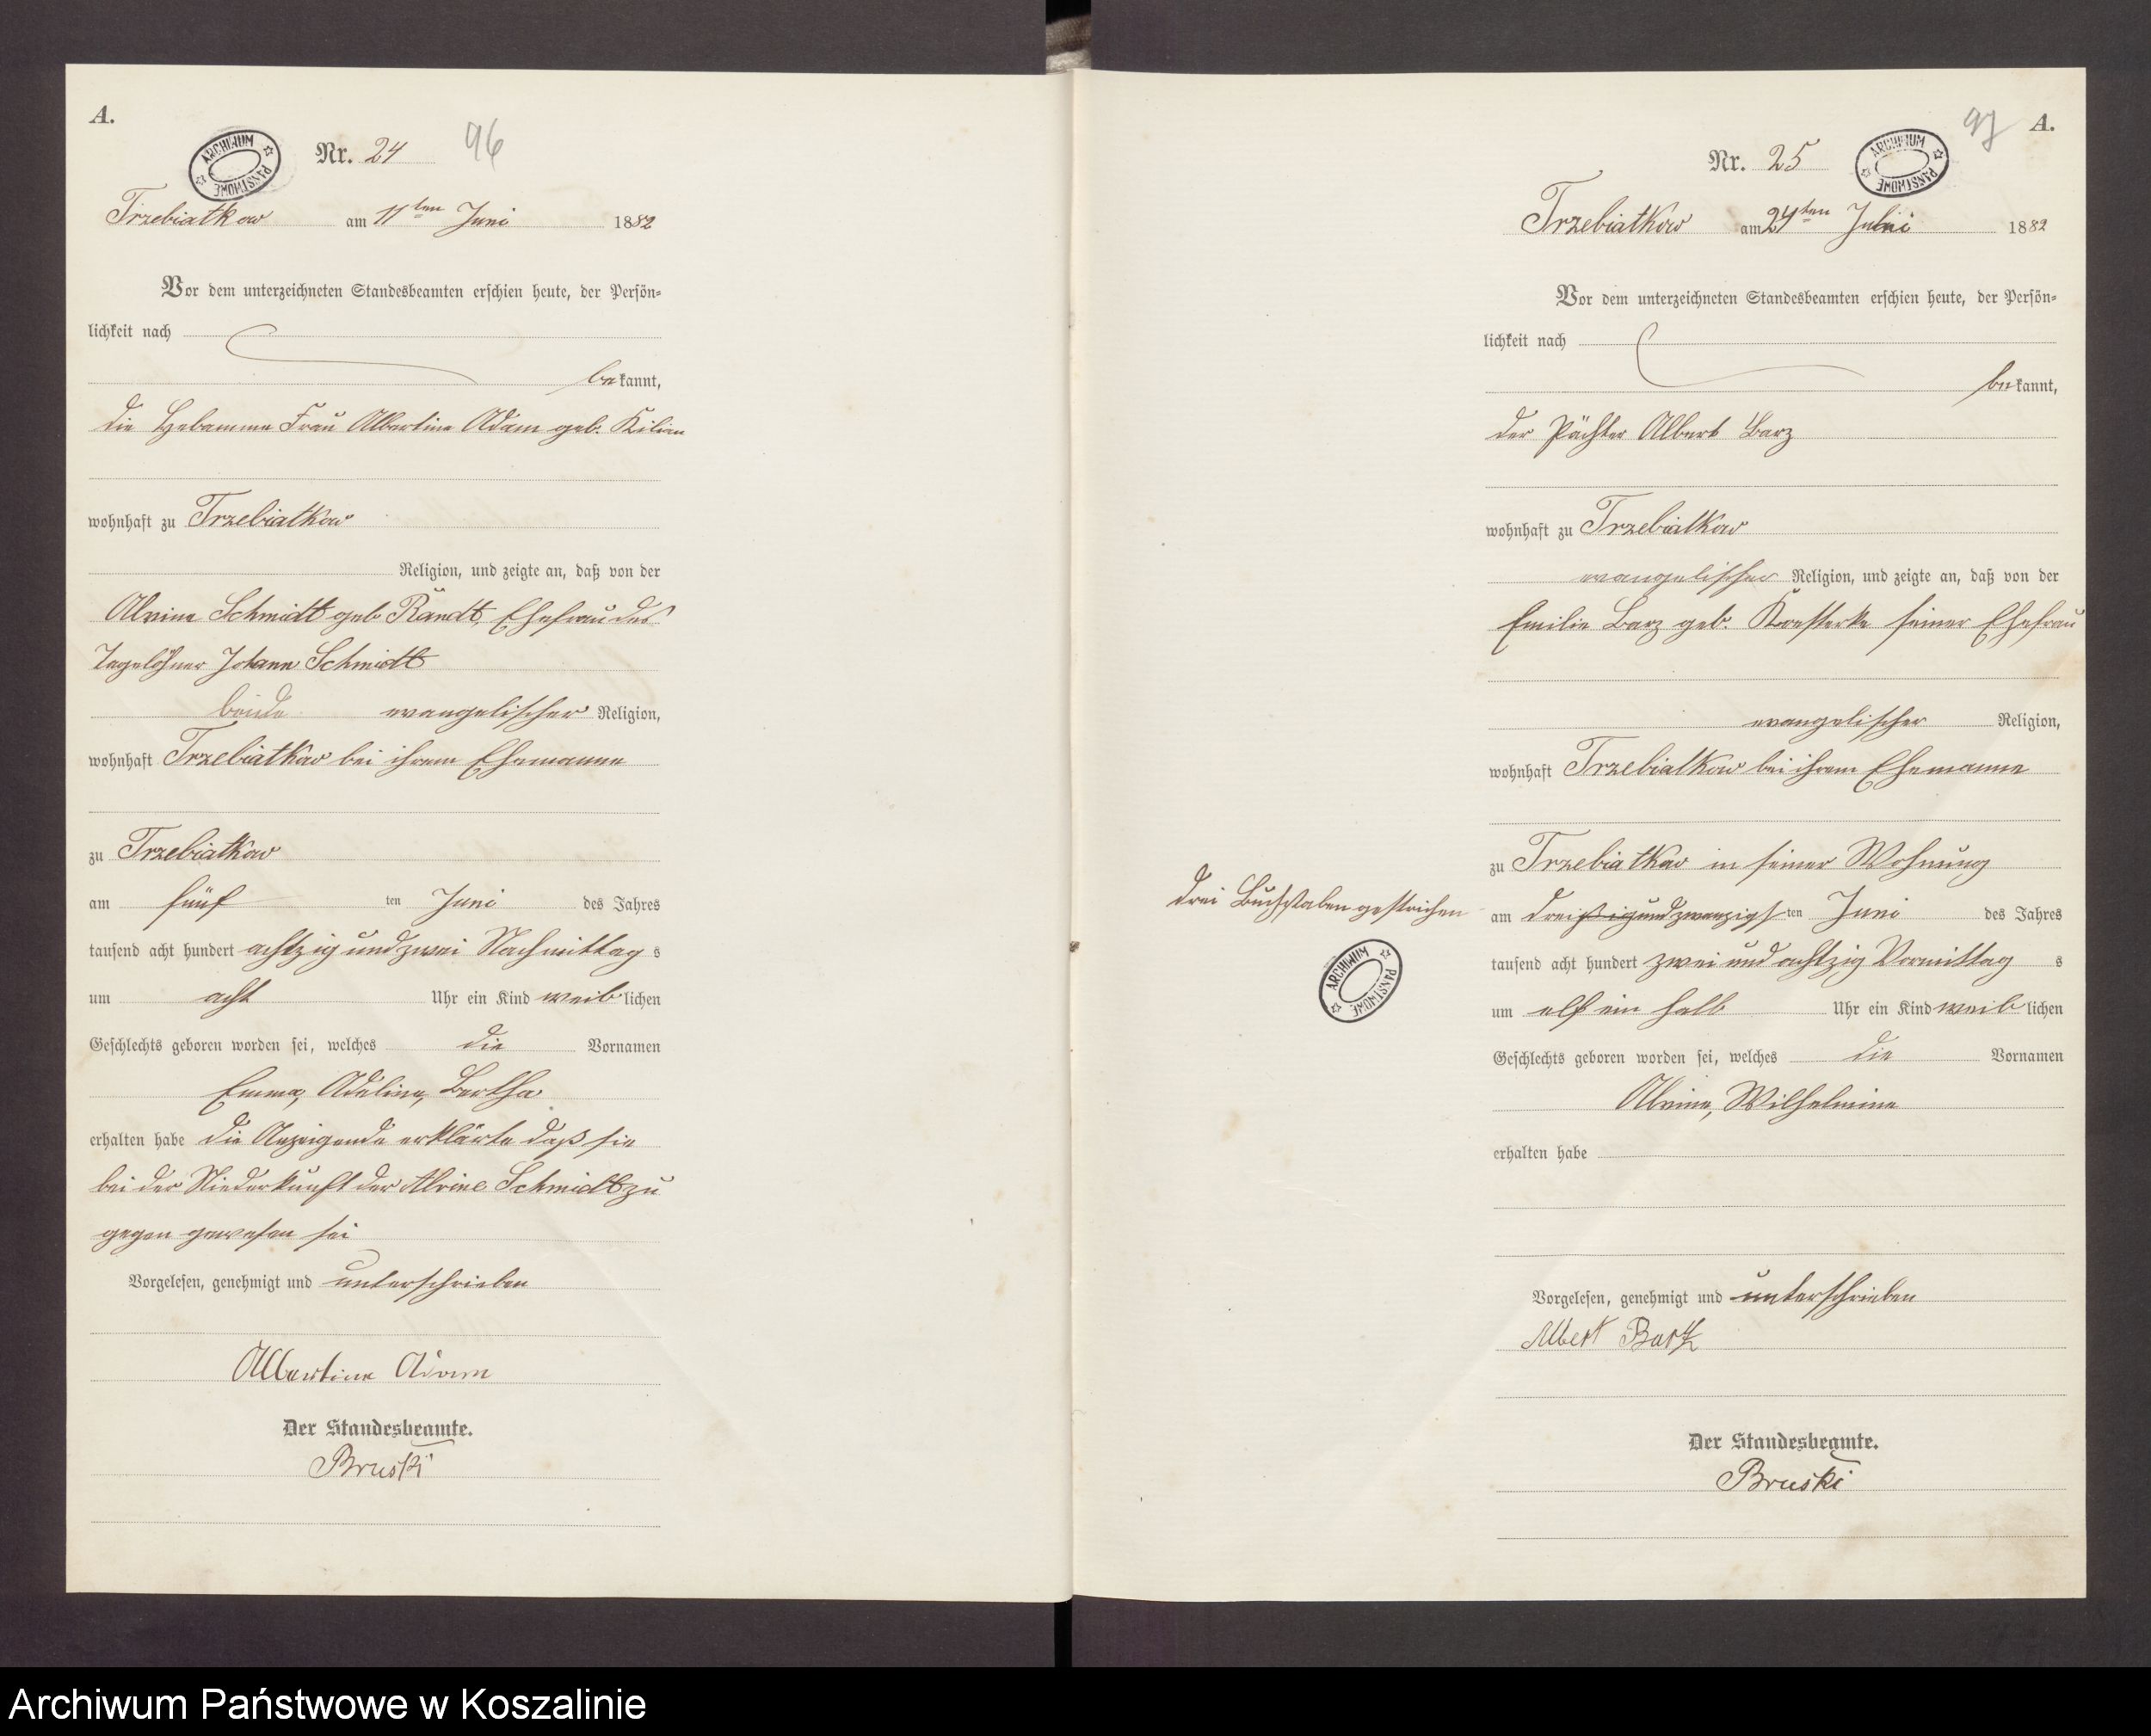 A.
ARCHIWUM PAŃSTWOWE
Nr. 24
96
Trzebiatkow am 11ten Juni 1882
Vor dem unterzeichneten Standesbeamten erschien heute, der Persön-
lichkeit nach
bekannt,
die Hebamme Frau Albertine Adam geb. Kilian
wohnhaft zu Trzebiatkow
Religion, und zeigte an, daß von der
Alvine Schmidt geb. Ehefrau des
Tagelöhner Johann Schmidt
beide evangelischer Religion,
wohnhaft Trzebiatkow bei ihrem Ehemanne
zu Trzebiatkow
am fünf ten Juni des Jahres
tausend acht hundert achtzig und zwei Nachmittag s
um acht Uhr ein Kind weiblichen
Geschlechts geboren worden sei, welches die Vornamen
Emma, Adeline, Bertha
erhalten habe die Anzeigende erklärte daß sie
bei der Niederkunft der Alvine Schmidt zu
gegen gewesen sei
Vorgelesen, genehmigt und unterschrieben
Albertine Adam
Der Standesbeamte.
Bruski
97
A.
Nr. 25
ARCHIWUM PAŃSTWOWE
Trzebiatkow am 24ten 1882
Vor dem unterzeichneten Standesbeamten erschien heute, der Persön-
lichkeit nach
bekannt,
der Pächter Albert Barz
wohnhaft zu Trzebiatkow
evangelischer Religion, und zeigte an, daß von der
Emilie Barz geb. seiner Ehefrau
evangelischer Religion,
wohnhaft Trzebiatkow bei ihrem Ehemanne
zu Trzebiatkow in seiner Wohnung
drei Buchstaben gestrichen
am dreißigundzwanzigsten Juni des Jahres
ARCHIWUM PAŃSTWOWE
tausend acht hundert zwei und achtzig Vormittag s
um elf ein halb Uhr ein Kind weiblichen
Geschlechts geboren worden sei, welches die Vornamen
Alvine, Wilhelmine
erhalten habe
Vorgelesen, genehmigt und unterschrieben
Albert Bartz
Der Standesbeamte.
Bruski
Archiwum Państwowe w Koszalinie